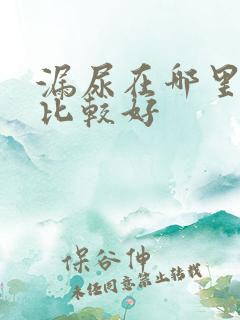 漏尿在哪里
比较好
保谷伸
未经同意禁止转载